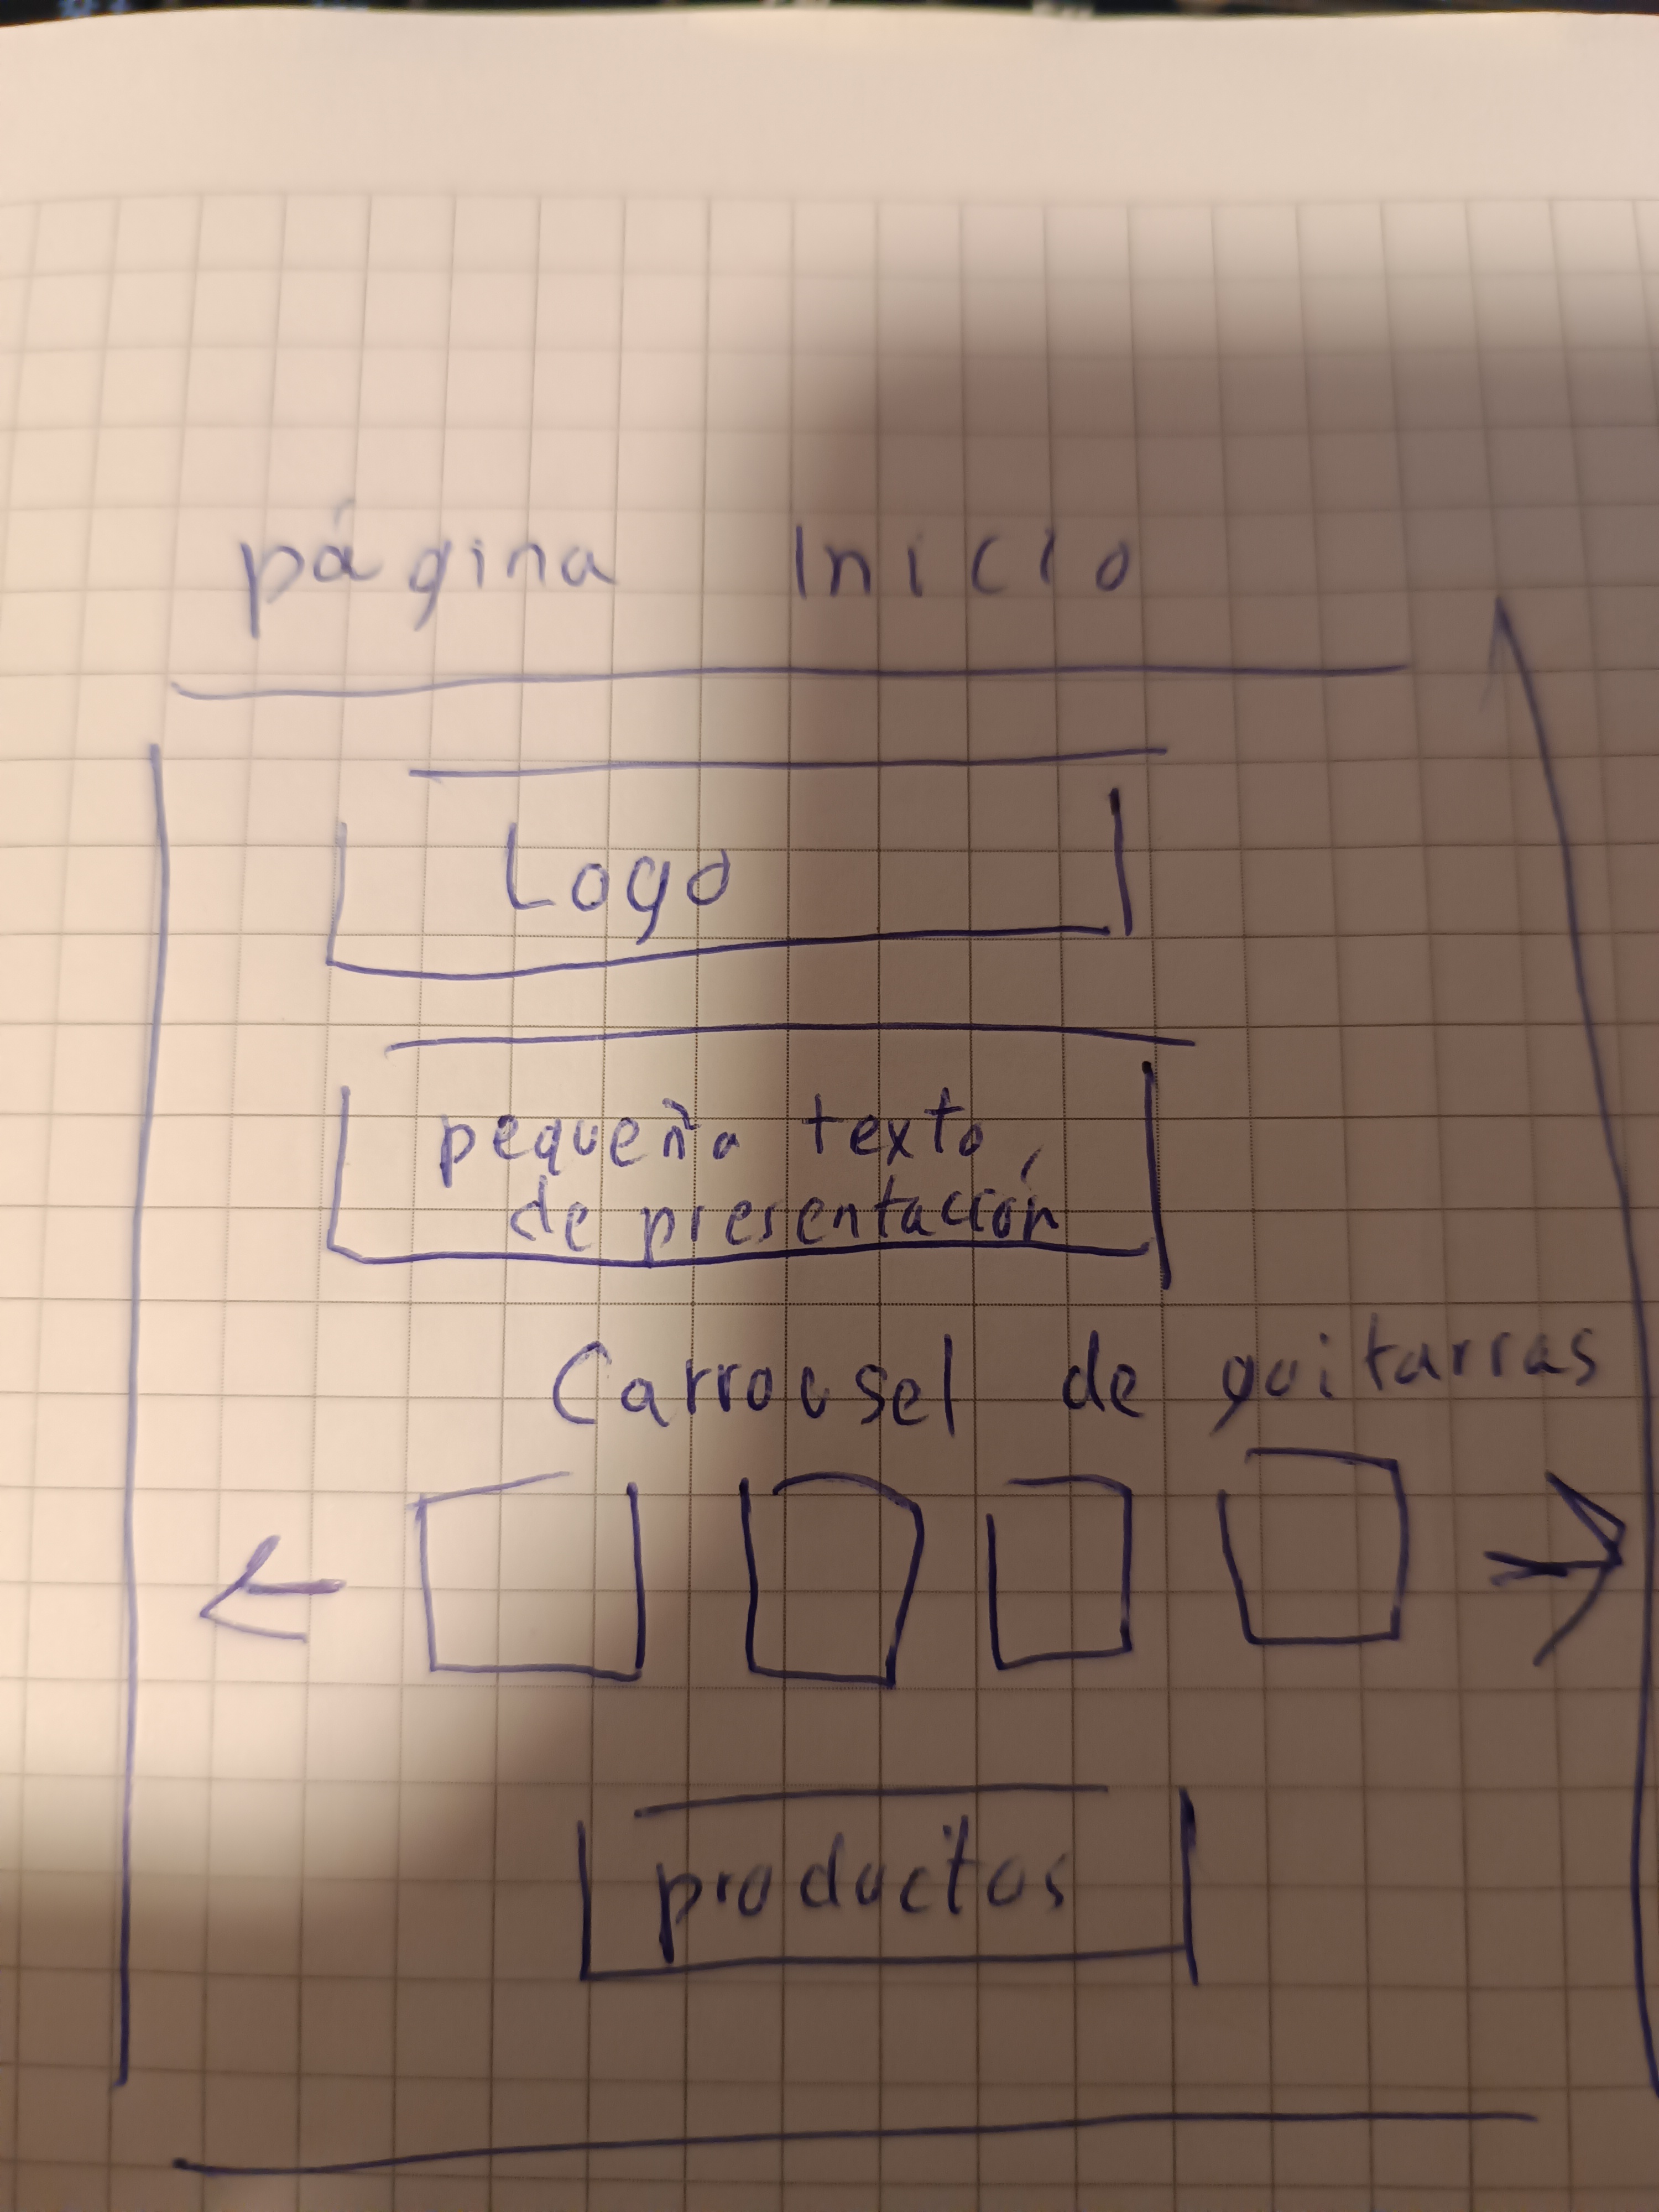 página Inicio
Logo
pequeño texto
de presentación
Carrousel de guitarras
productos